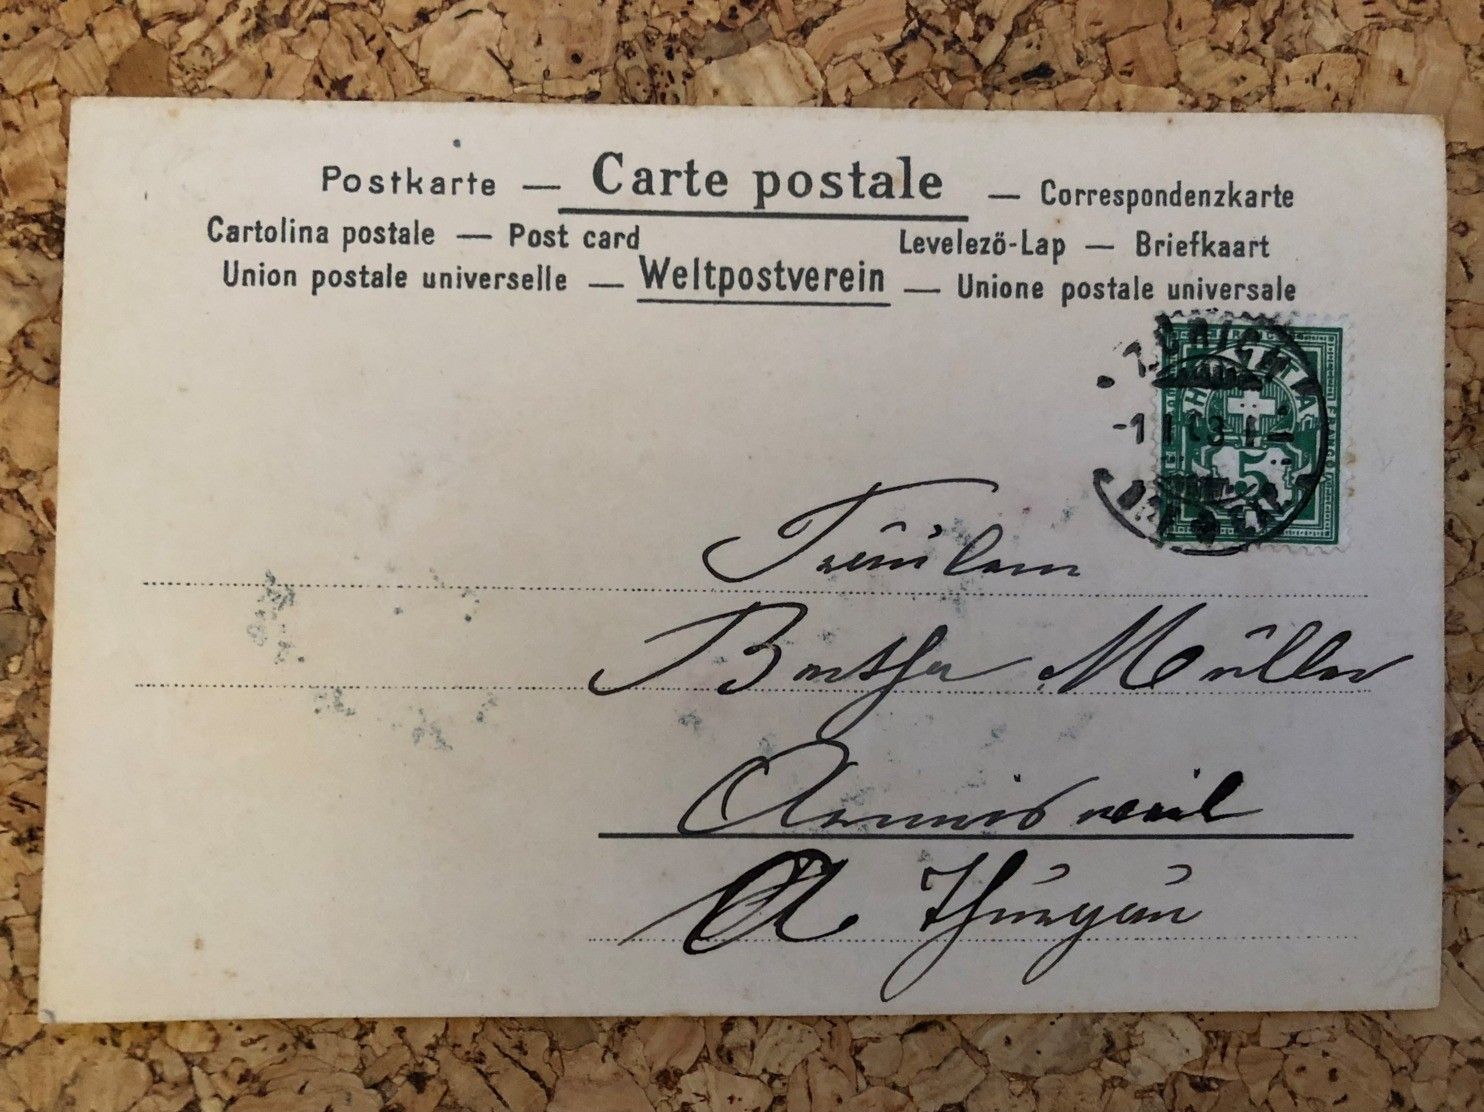 Postkarte — Carte postale — Correspondenzkarte
Cartolina postale — Post card Levelező-Lap — Briefkaart
Union postale universelle — Weltpostverein — Unione postale universale
HELVETIA
5
Fräulein
Bertha Müller
Thurgau